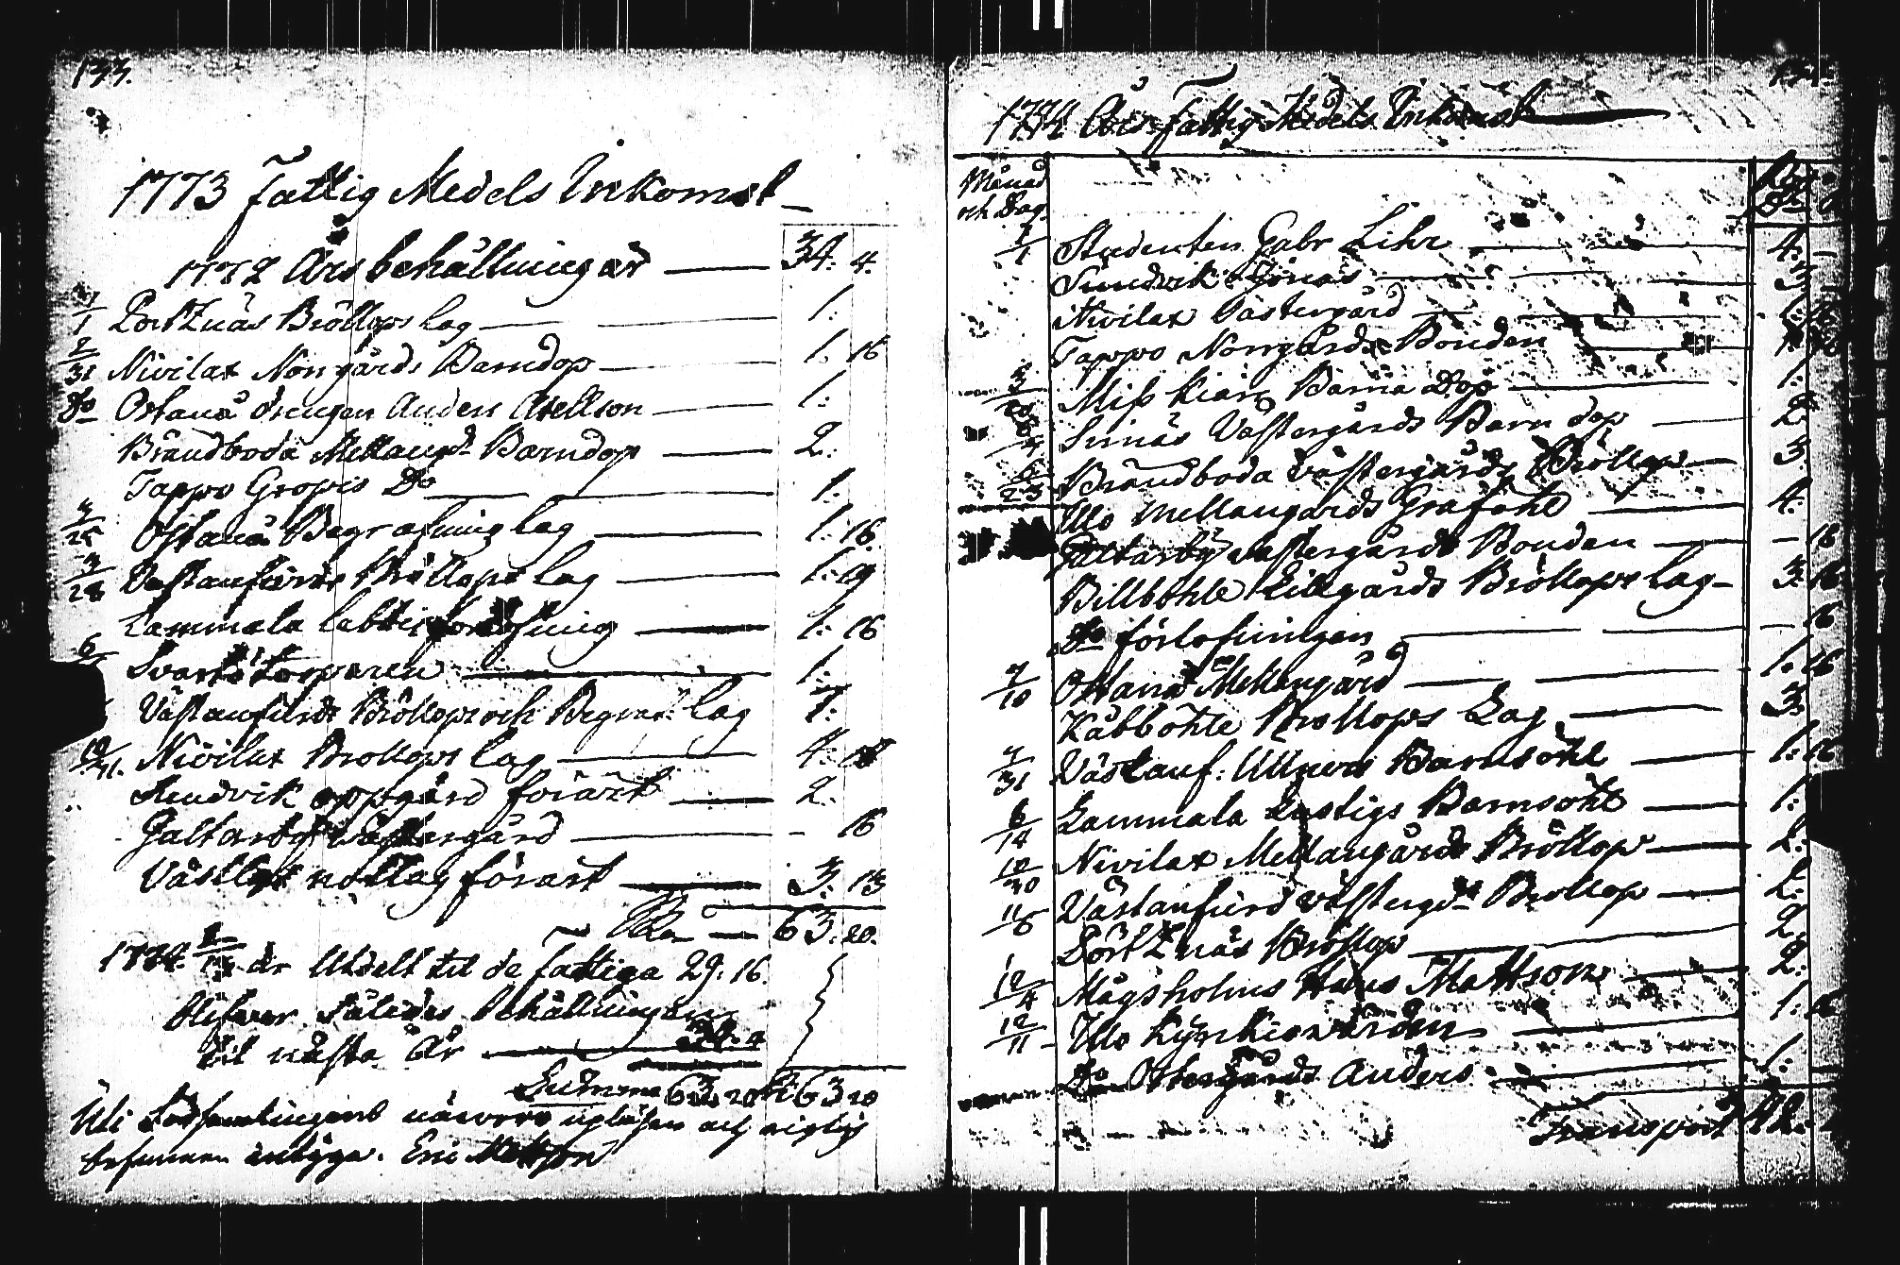 133.
1773 Fattig Medels Inkomst
1772 Års behållning är 34. 4.
1 PortZnäs Bröllops lag 1.
2/31 Nivilax Norrgårds Barndop 1. 16
Do Ostanå drengen Anders Axellson 1:
Brändboda Mellangd Barndop 2.
Tappo Gropis Do 1.
Östanå Begrafning lag 1. 16.
Västanfiärds Bröllops lag 1. 19
28
Lammala 1. 16
6 Svartö torparen 1.
Västanfiärds Bröllops och Begraf: lag 7.
10/31. Nivilax Brollops lag 4.
Sundvik oppgård förärt 2.
Galtarby Wästergård - 16
notlag förärt 3. 13
63. 20.
1774. är Utdelt til de fattiga 29. 16.
Blifver således behållningen
til nästa År 34. 4
Summa 63. 20 63 20
Uti Församlingens närvaro upläsen och rigtig
befunnen intyga. Eric Mattsson
1774 Års Fattig Medels Inkomst
Månad
och Dag
1 Studenten Gabr Lihr 4. -
Sundvik Jonas 3
Nivilax Västergård 1.
Tappo Norrgårds Bonden 1.
Miss Kiær Barna Dop 1.
Sunäs Västergårds Barn dop 2.
Brändboda Västergårds Bröllop 3.
23
Illo Mellangårds Graföhl 4.
Galtarby Västergårds Bonden - 16
Billböhle Lillgårds Bröllops lag 3. 16
Do förlofningen - 16
7/10 Östanå Mellangård 1. 16
Käbböhle Brollops Lag 3.
7/31 Västanf: Ullners Barnsöhl 1. 16
6/14 Lammala Lustigs Barnsöhl 1.
10/30 Nivilax Mellangårds Bröllop 2.
11/6 Västanfiärd västergd Brollop 2.
PörtZnäs Bröllop 2.
12/4 Mågsholms Hans Mattson 2.
12/11 Illo Kyrkiovärden 1. 16
Do Östergårds Anders 1.
Transport 42.